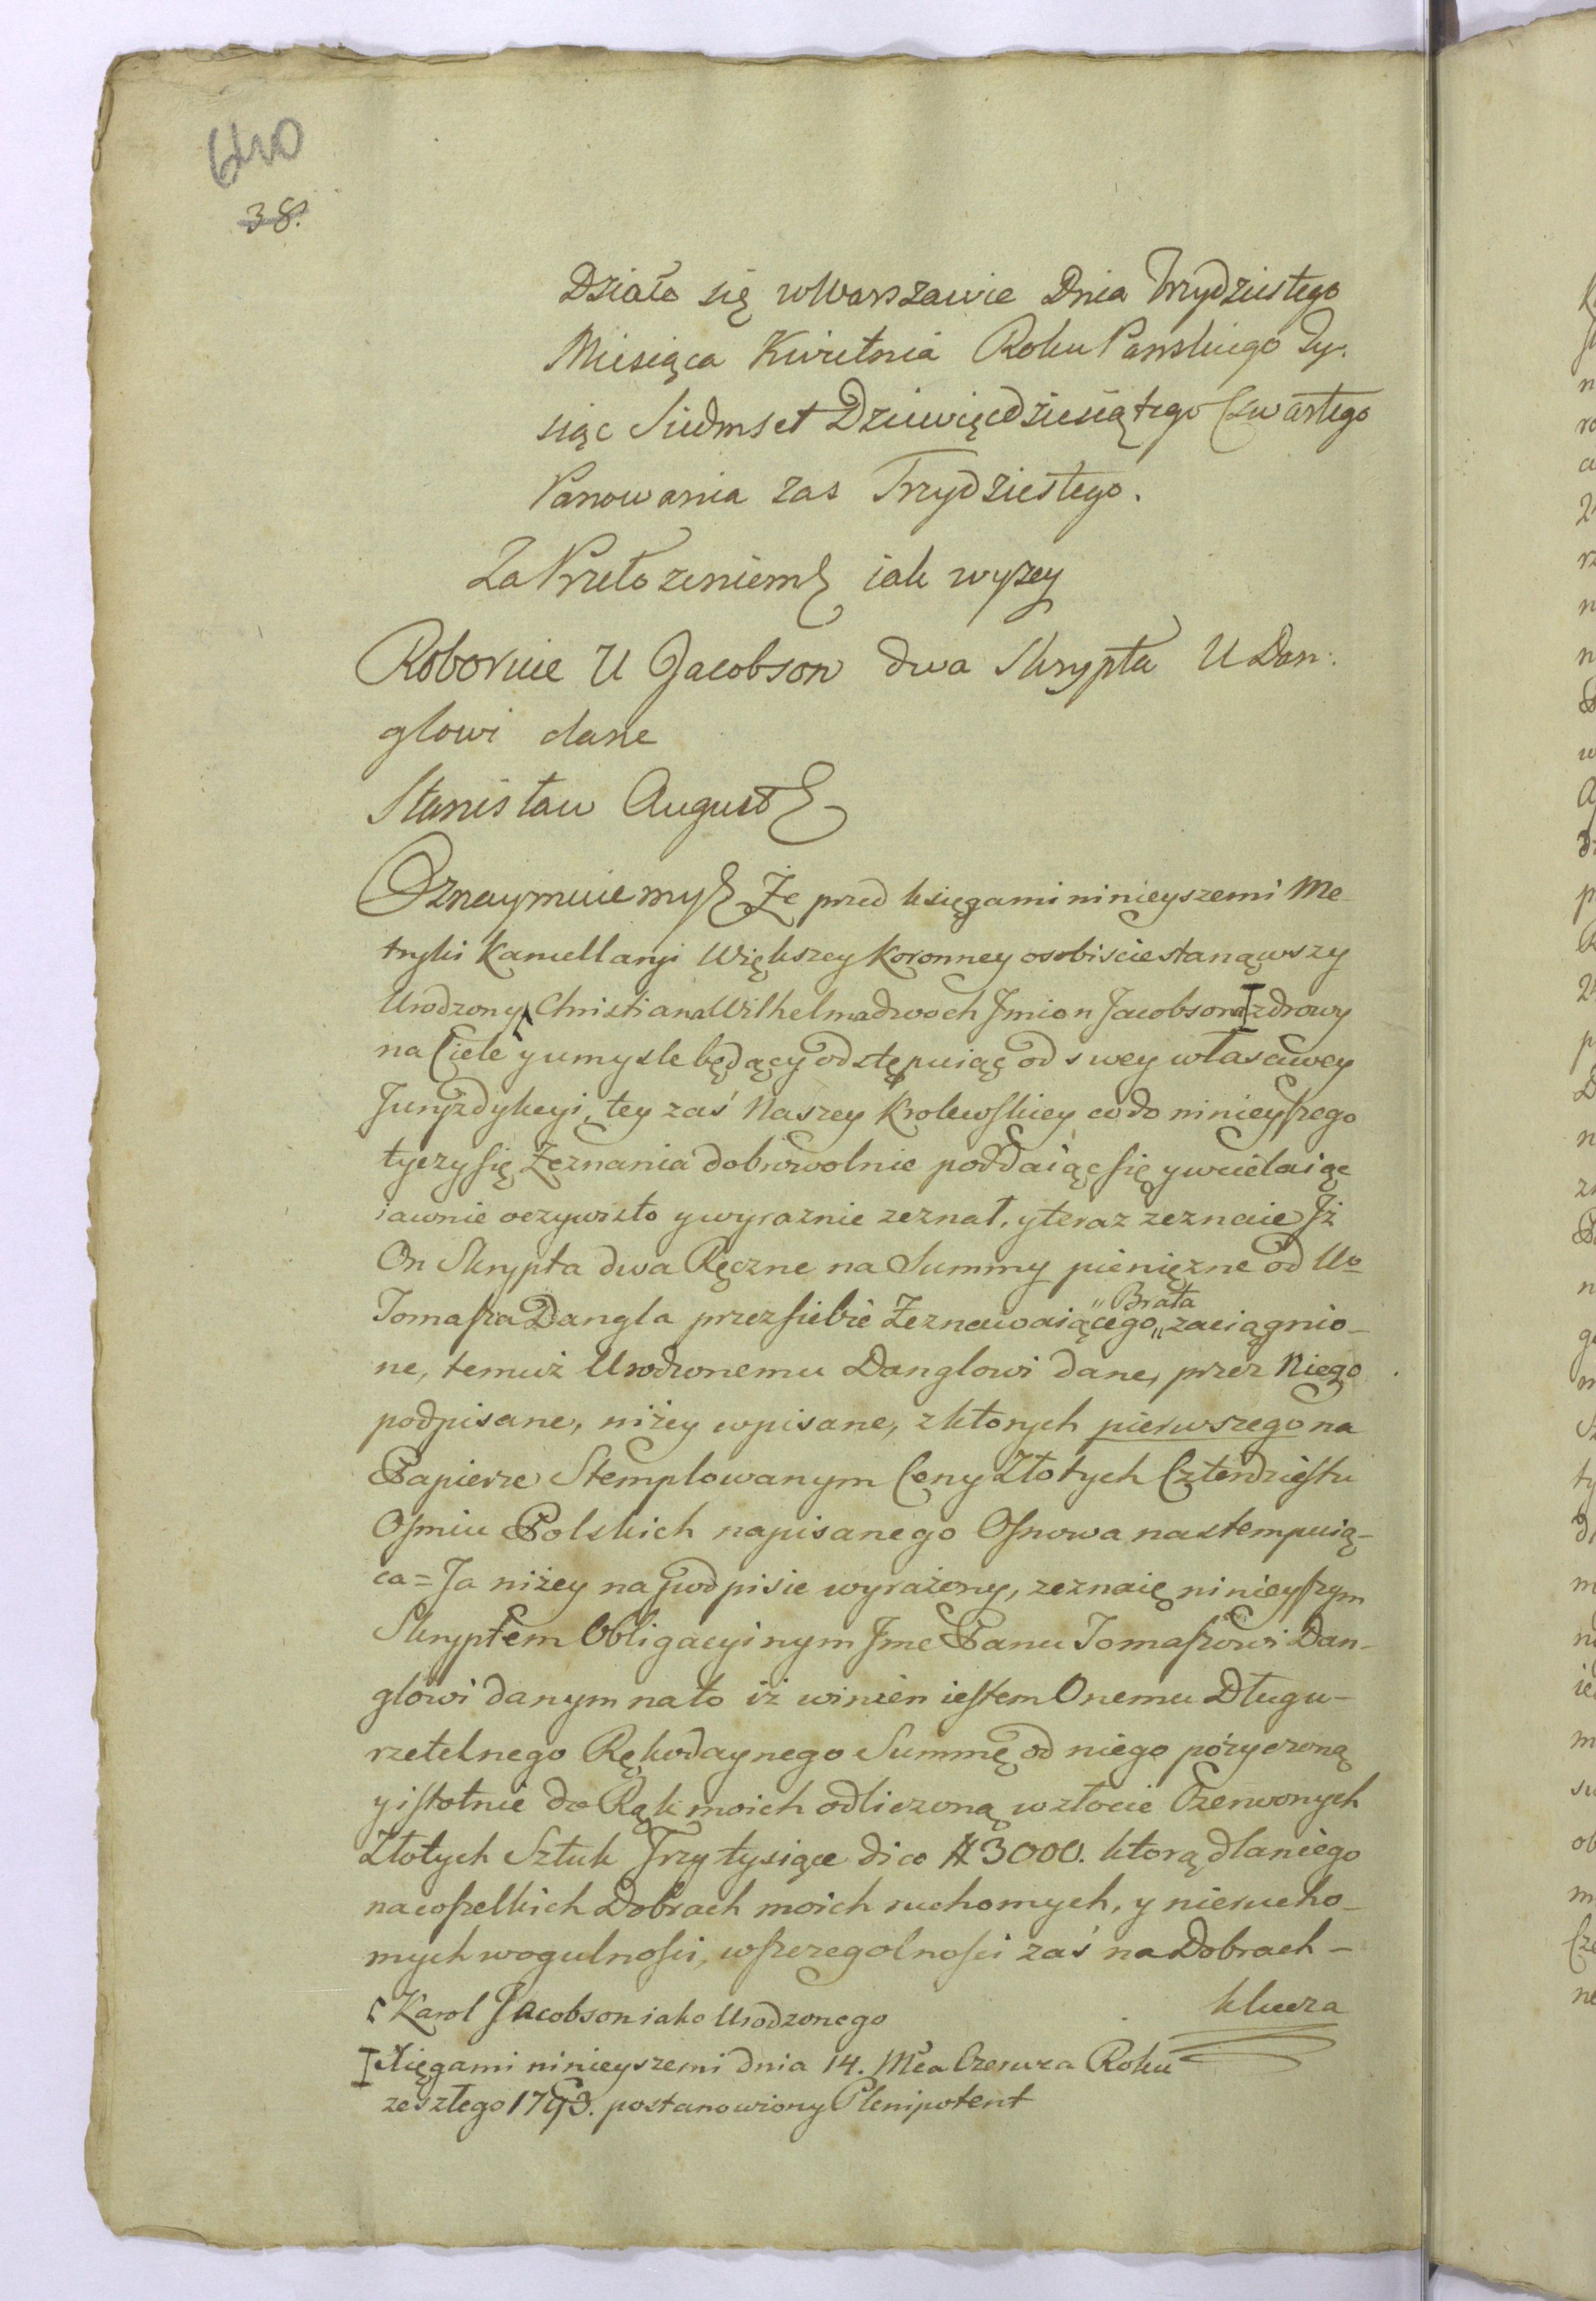 640
38.
Działo się w Warszawie Dnia Trzydziestego
Miesiąca Kwietnia Roku Panskiego Ty-
siąc Siedmset Dziewięcdziesiątego Czwartego
Panowania zas Trzydziestego.
Za Przełozeniem iak wyzey
Roboruie U Jacobson dwa Skrypta U Dan:
glowi dane
Stanisław August
Oznaymuiemy Że przed księgami ninieyszemi Me-
tryki Kancellaryi Większey Koronney osobiscie stanąwszy
Urodzony Christiana Wilhelma dwoch Jmion Jacobsona zdrowy
na Ciele y umysle będący odstępuiąc od swey własciwey
Juryzdykcyi, tey zaś Naszey Krolewskiey co do ninieyszego
tyczy się Zeznania dobrowolnie poddaiąc się y wcielaiąc
iawnie oczywisto y wyraznie zeznał, y teraz zeznaie Jż
On Skrypta dwa Ręczne na Summy pieniężne od Uo
Tomasza Dangla przez siebie Zeznawaiącego " Brata " zaciągnio-
ne, temuż Urodzonemu Danglowi dane, przez Niego
podpisane, niżey wpisane, z ktorych pierwszego na
Papierze Stemplowanym Ceny Złotych Czterdziestu
Osmiu Polskich napisanego Osnowa nastempuią-
ca = Ja niżey na podpisie wyrażony, zeznaię ninieyszym
Skryptem Obligacyinym Jmc Panu Tomaszowi Dan-
glowi danym na to iż winien iestem Onemu Długu-
rzetelnego Rękodaynego Summę od niego pożyczoną
y istotnie do Rąk moich odliczoną w złocie Czerwonych
Złotych Sztuk Trzy tysiące dico # 3000. ktorą dla niego
na wszelkich Dobrach moich ruchomych, y nierucho-
mych wogulnosci, wszczegolnosci zaś na Dobrach -
Klucza
Karol Jacobson iako Urodzonego
Xięgami ninieyszemi dnia 14. Mca Czerwca Roku
zeszłego 1793. postanowiony Plenipotent